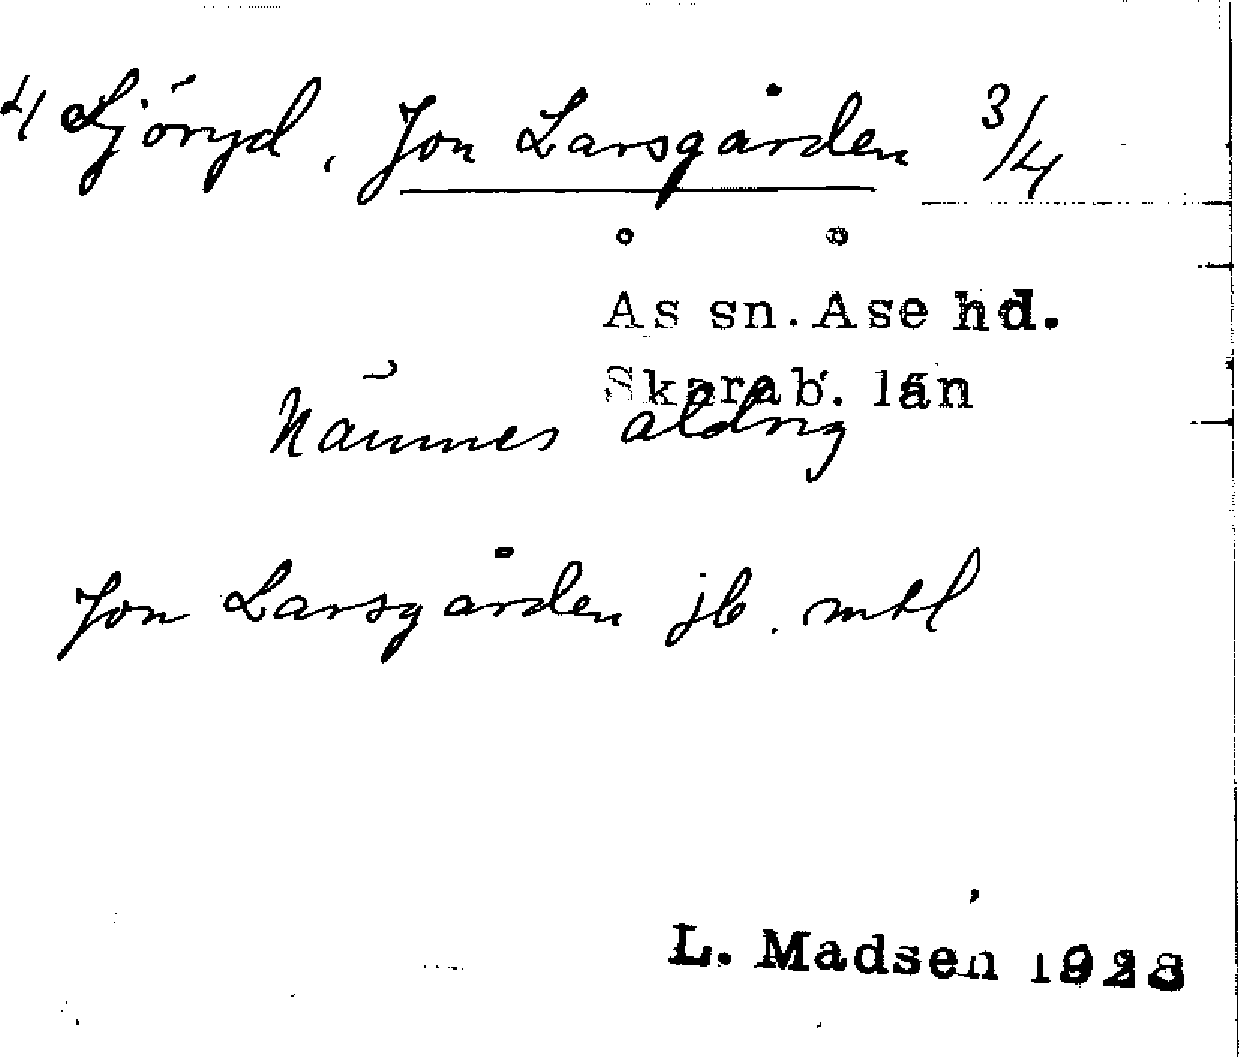 4 Sjöryd, Jon Larsgården 3/4
Ås sn. Åse hd.
Skarab. län
Nämnes aldrig
Jon Larsgården jb. mtl
L. Madsen 1928